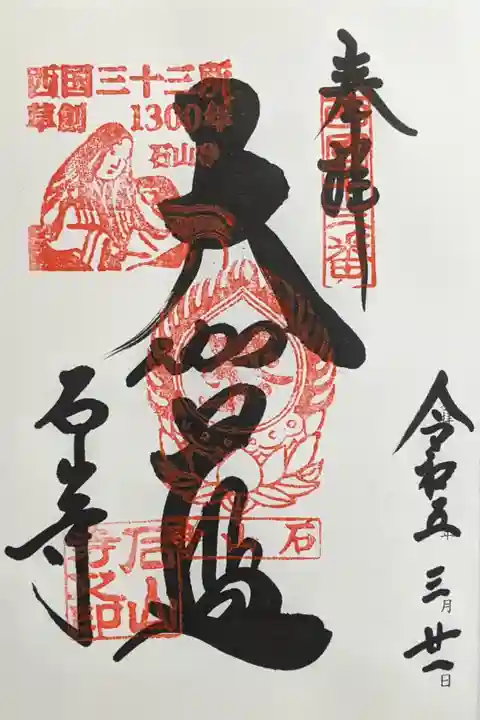 奉拝
西国十三番
令和五年三月廿一日
西国三十三所
草創 1300年
石山寺
大伽藍
石山
石山寺
石山寺之印